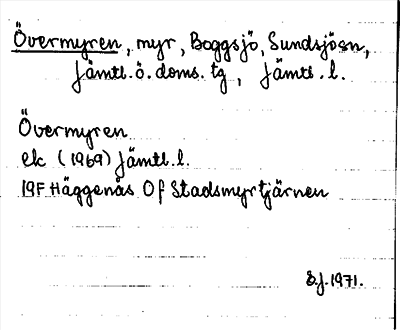 Övermyren, myr, Boggsjö, Sundsjösn,
Jämtl.ö.doms.tg, Jämtl.l.
Övermyren
ek (1969) Jämtl.l.
19F Häggenås Of Stadsmyrtjärnen
S.J. 1971.